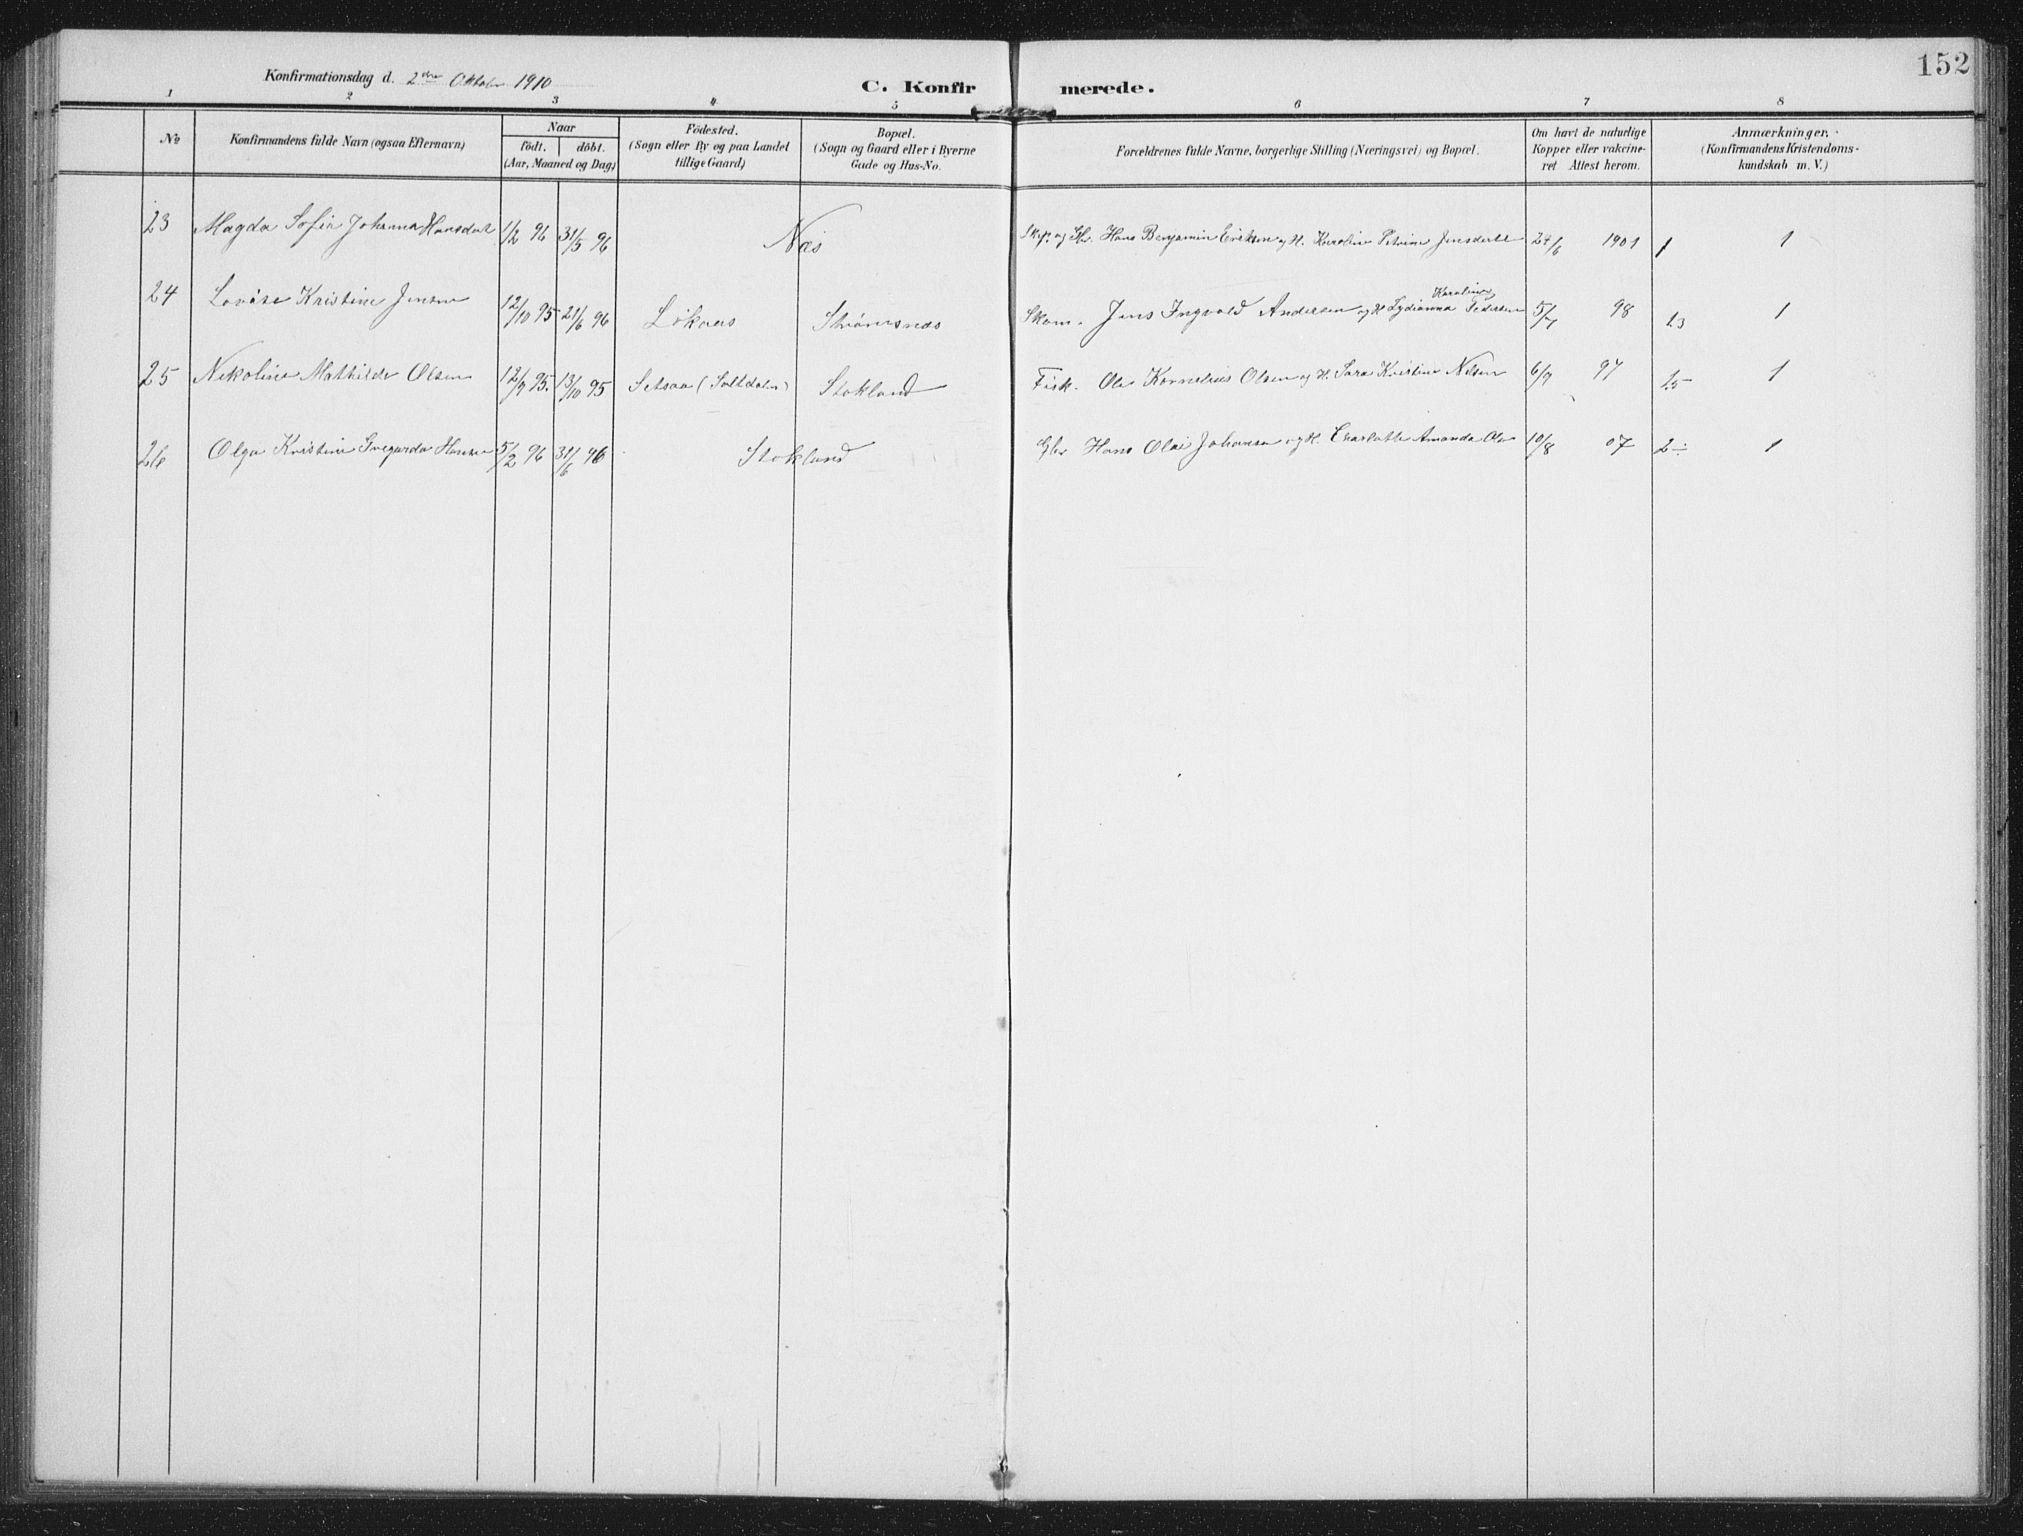 152
Konfirmationsdag d. 2den Oktober 1910
C. Konfirmerede.
1 2 3 4 5 6 7 8
No
Konfirmandens fulde Navn (ogsaa Efternavn)
Naar
födt. döbt.
(Aar, Maaned og Dag)
Födested.
(Sogn eller By og paa Landet
tillige Gaard)
Bopæl.
(Sogn og Gaard eller i Byerne
Gade og Hus-No.
Forældrenes fulde Navne, borgerlige Stilling (Næringsvei) og Bopæl.
Om havt de naturlige
Kopper eller vakcine-
ret Attest herom.
Anmærkninger.
(Konfirmandens Kristendoms-
kundskab m. V.)
23 Magda Sofie Johanna Hansdat 1/2 96 31/5 96 Næs Hans Benjamin Eriksen og H. Karoline Petrine Jensdatt 24/6 1901 1 1
Karoline
24 Lovise Kristine Jensen 12/10 95 21/6 96 Löknes Strömsnæs Skom. Jens Ingvold Andersen og H Lydianna Pedersen 5/7 98 1.3 1
25 Nikoline Mathilde Olsen 12/9 95. 13/10 95 Setsaa (Saltdalen) Stokland Fisk. Ole Kornelius Olsen og H. Sara Kristine Nilsen 6/9 97 1.5 1
26 Olga Kristine Hansen 5/2 96 31/6 96 Stokland Gbr Hans Olai Johansen og H. Charlotte Amanda Ols 10/8 07 2 ÷ 1